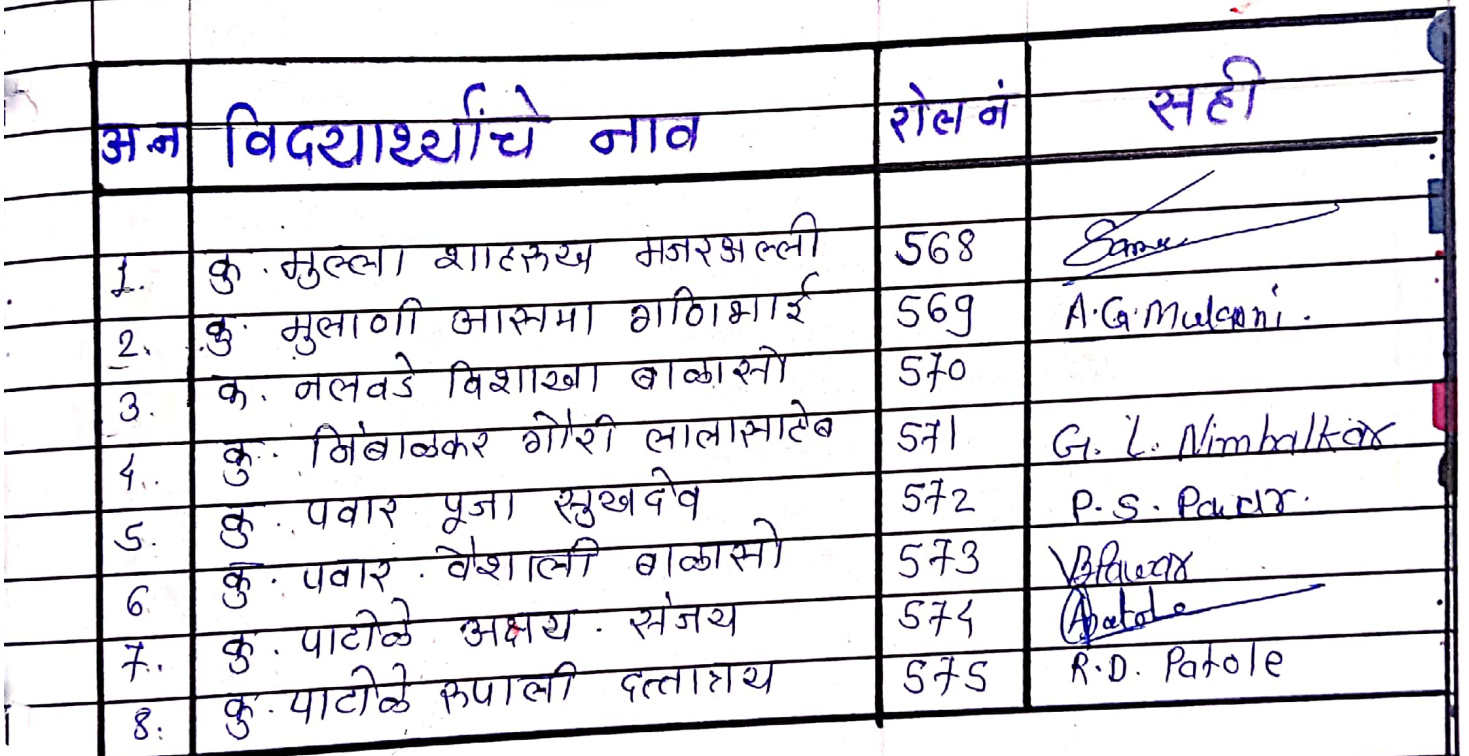 अ.न विदयार्थ्यांचे नाव रोल नं सही
1. कु. मुल्ला शाहरुख मजरअल्ली 568
2. कु. मुलाणी आसमा गणिभाई 569 A.G.Mulani.
3. कु. नलवडे विशाखा बाळासो 570
4. कु. निंबाळकर गौरी लालासाहेब 571 G. L. Nimbalkar
5. कु. पवार पूजा सुखदेव 572 P. S. Pawar.
6 कु. पवार. वैशाली बाळासो 573 VBPawar
7. कु. पाटोळे अक्षय. संजय 574 Apatole
8. कु. पाटोळे रुपाली दत्तात्रय 575 R.D. Patole